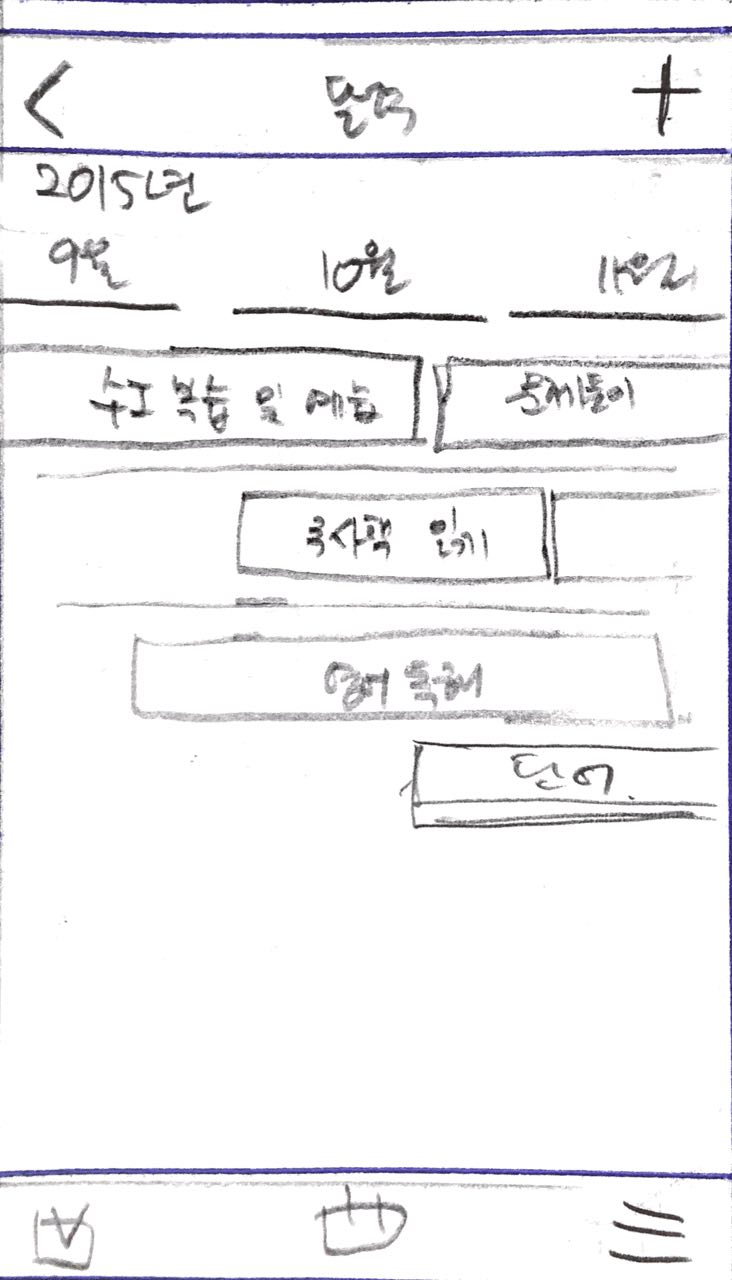 달력
2015년
9월 10월 11월
복습 및 예습 문제풀이
국사책 읽기
영어 독해
단어.